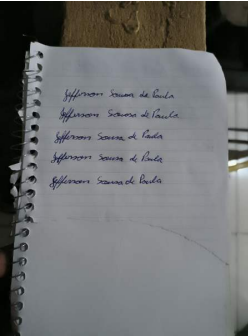 Jefferson Sousa de Paula
Jefferson Sousa de Paula
Jefferson Sousa de Paula
Jefferson Sousa de Paula
Jefferson Sousa de Paula